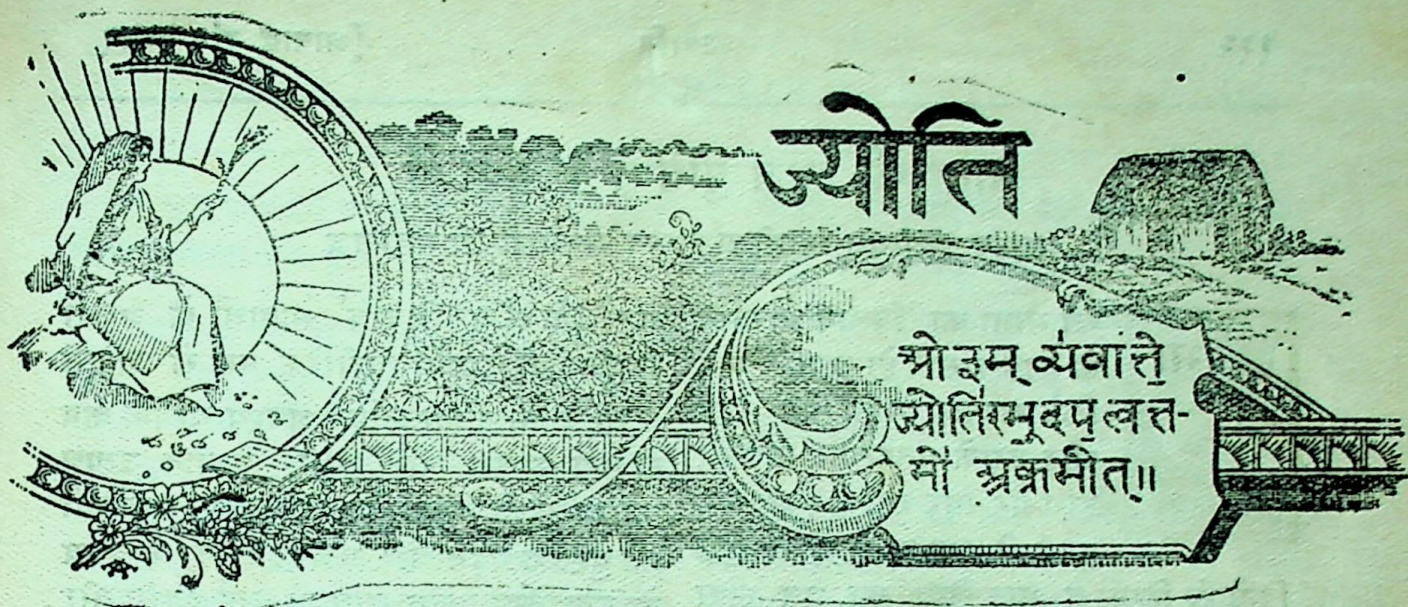 ज्योति
ओ३म् व्य॑वात्ते॒
ज्योति॑रभू॒दप॒ त्वत्त-
मो॑ अक्रमीत्॥